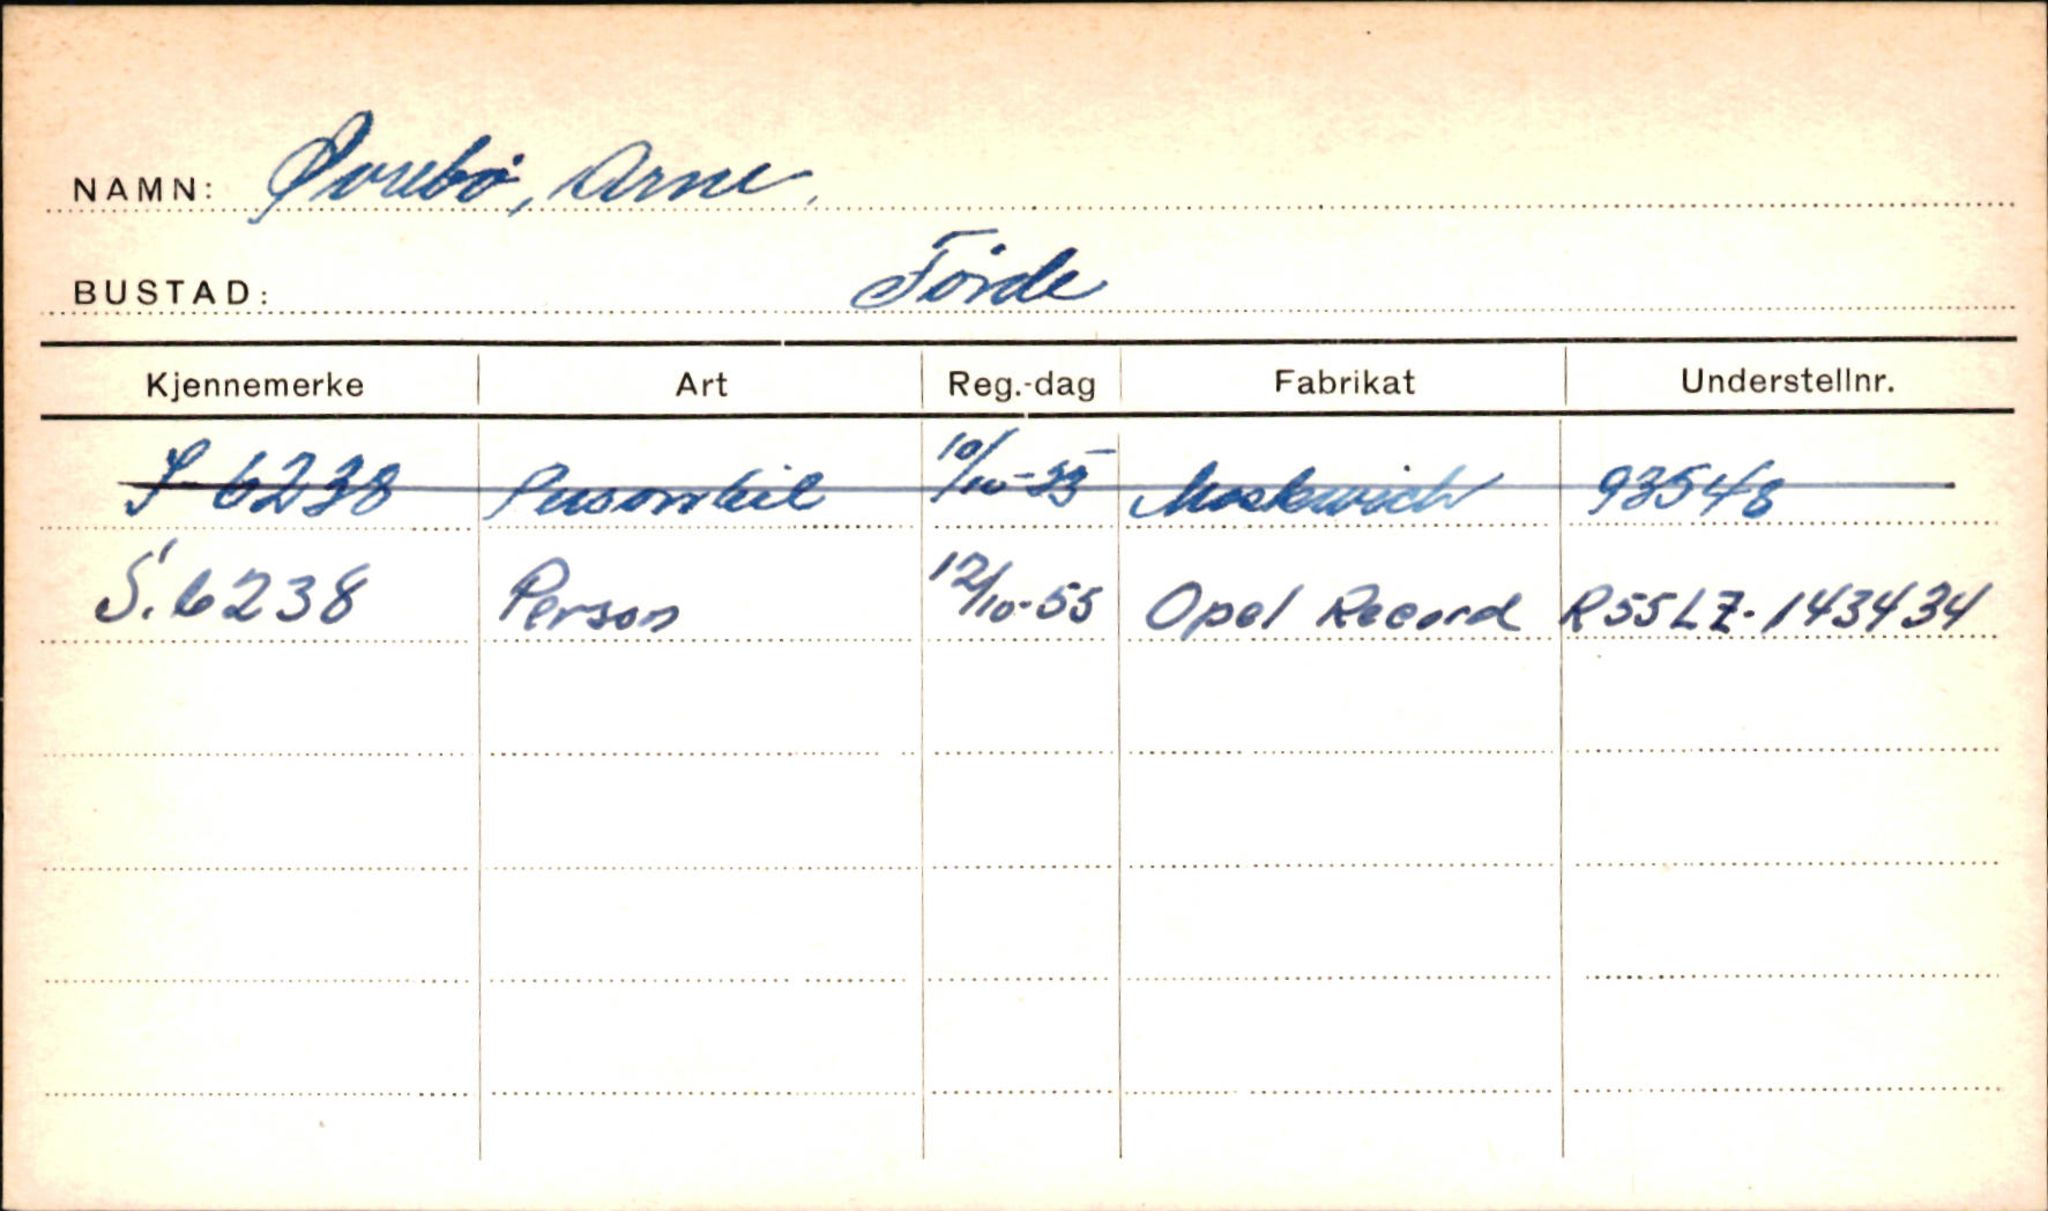 NAMN: Øvrebö, Arne.
BUSTAD: Förde
Kjennemerke Art Reg.-dag Fabrikat Understellnr.
S-6238 Personbil 10/10-55 Moskwich 93548
S.6238 Person 12/10-55 Opel Record R55LZ-143434